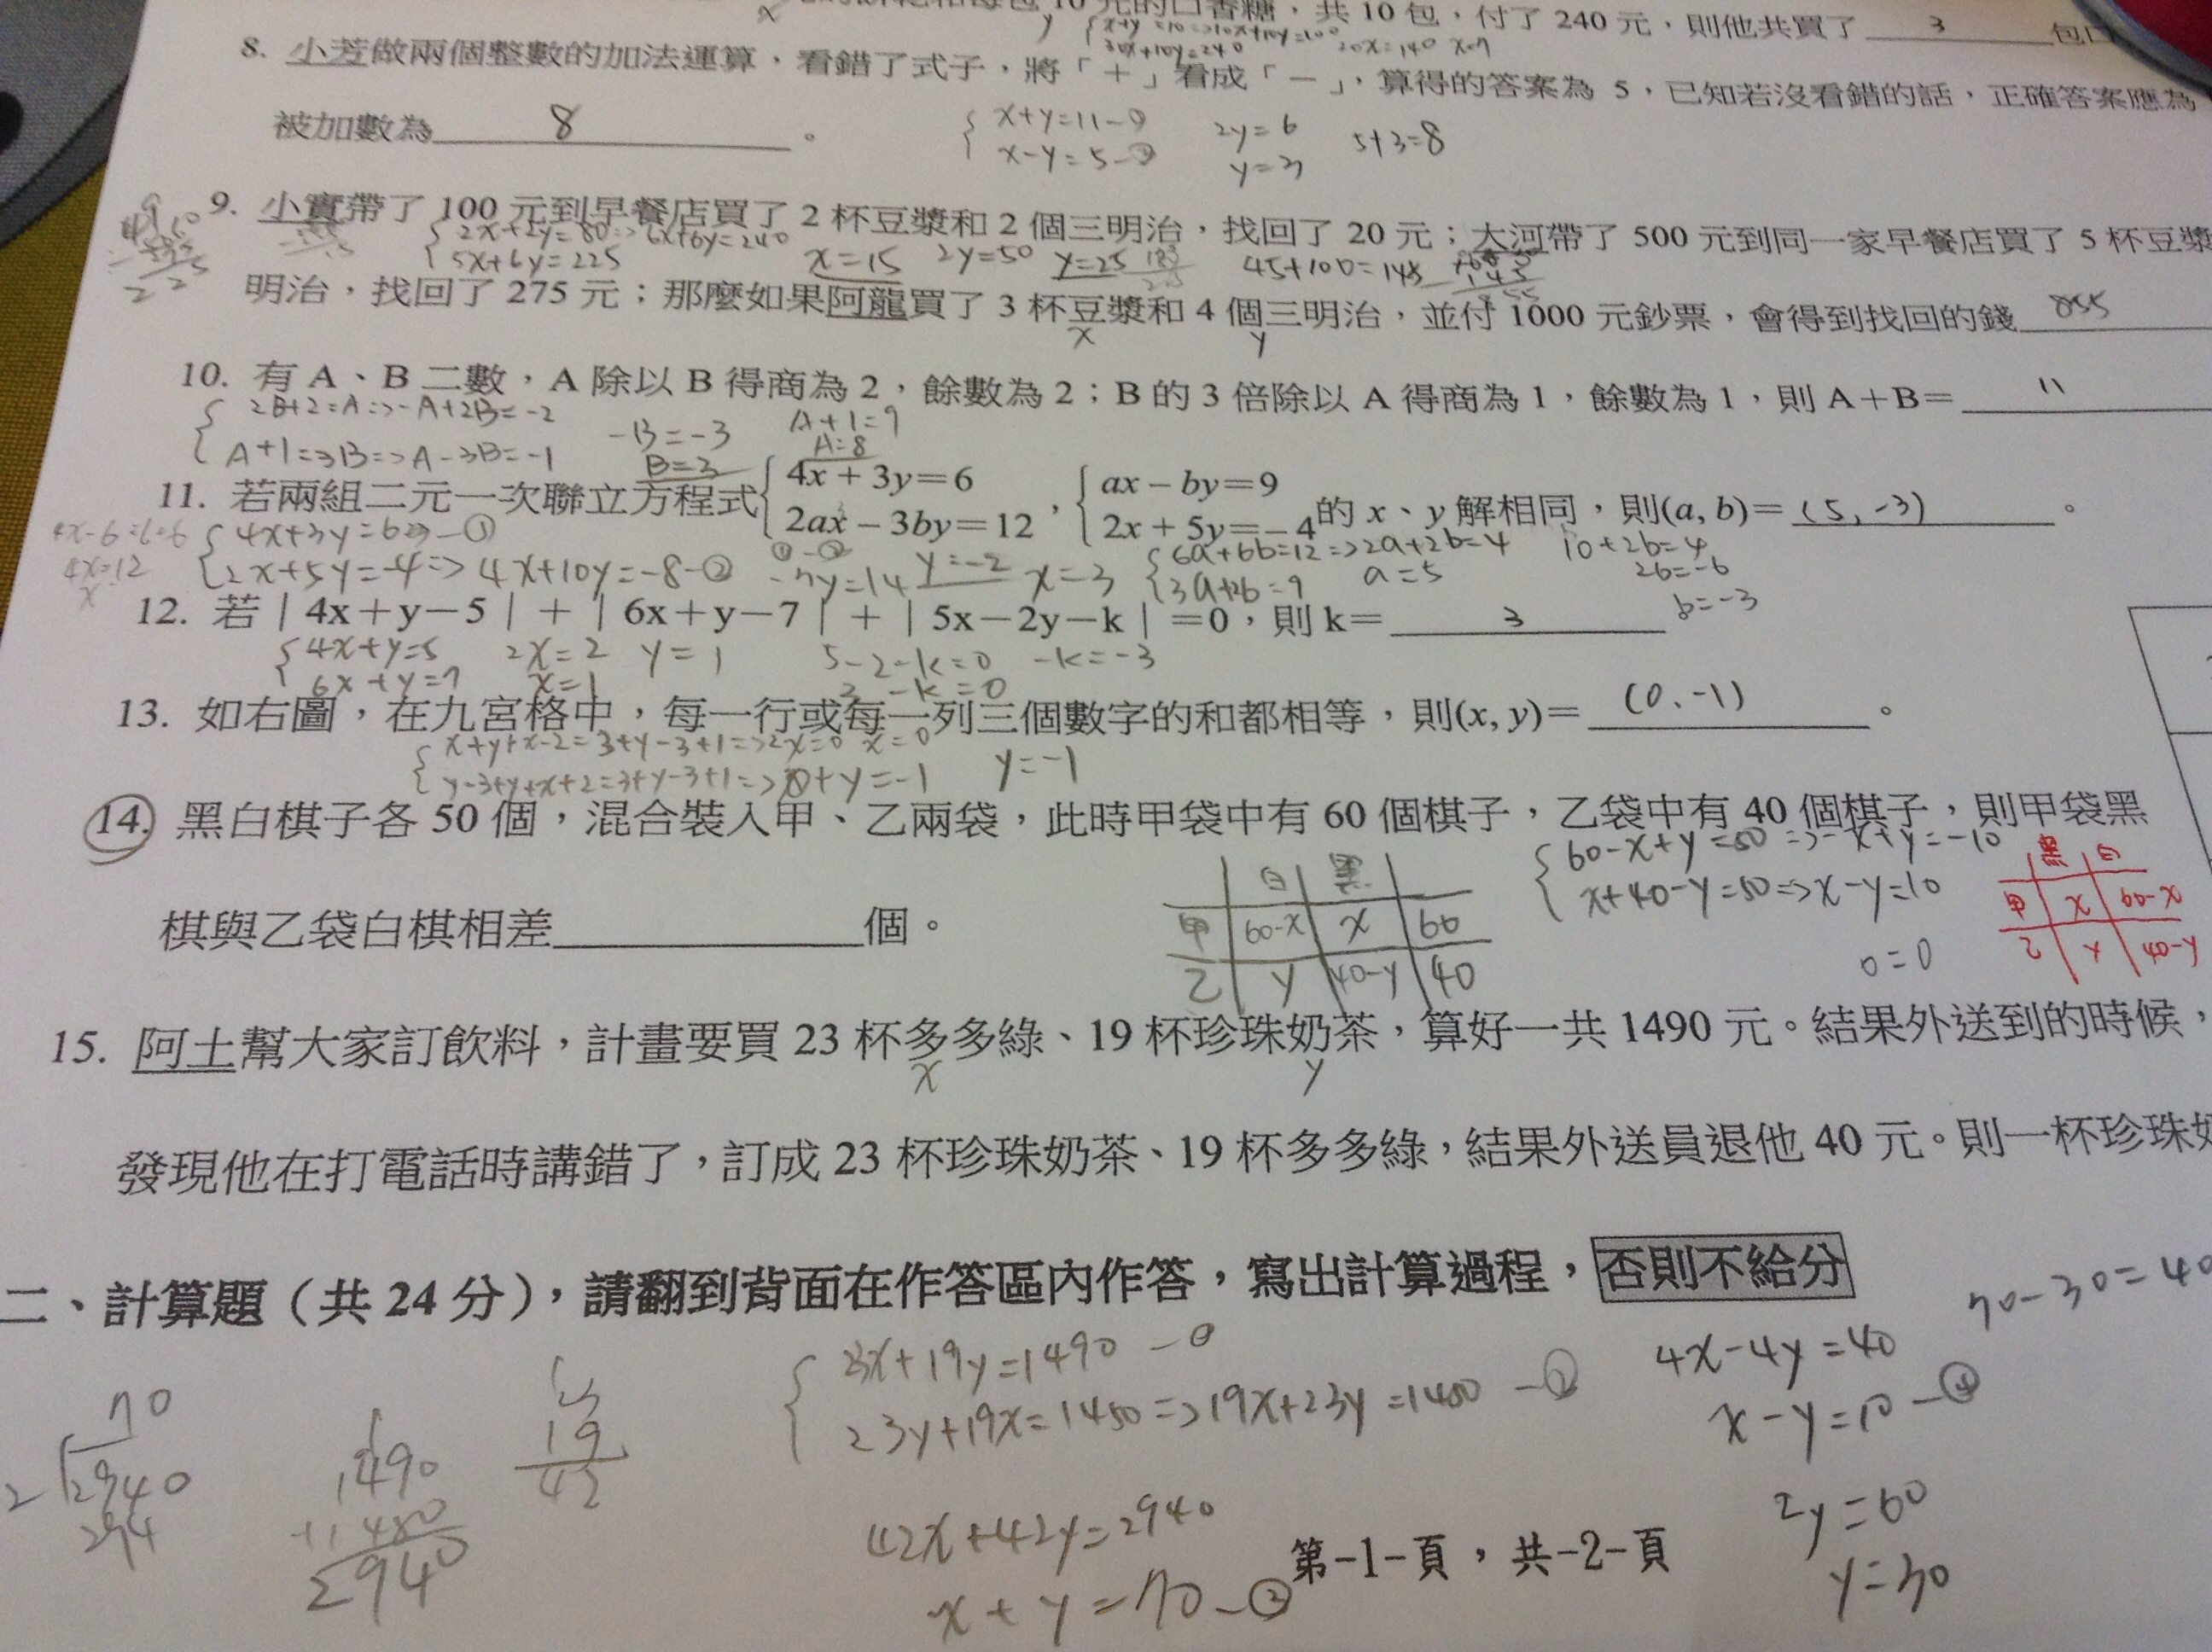 10 元的口香糖，共 10 包，付了 240 元，則他共買了 3 包口
x y { x+y=10=>10x+10y=100
30x+10y=240 20x=140 x=7
8. 小芳做兩個整數的加法運算，看錯了式子，將「＋」看成「－」，算得的答案為 5，已知若沒看錯的話，正確答案應為
被加數為 8 。
{ x+y=11-① 2y=6 5+3=8
x-y=5-② y=3
9. 小實帶了 100 元到早餐店買了 2 杯豆漿和 2 個三明治，找回了 20 元；大河帶了 500 元到同一家早餐店買了 5 杯豆漿
{ 2x+2y=80=>6x+6y=240 x=15 2y=50 y=25 45+100=145
5x+6y=225
明治，找回了 275 元；那麼如果阿龍買了 3 杯豆漿和 4 個三明治，並付 1000 元鈔票，會得到找回的錢 855
x y
10. 有 A、B 二數，A 除以 B 得商為 2，餘數為 2；B 的 3 倍除以 A 得商為 1，餘數為 1，則 A＋B＝ 11
{ 2B+2=A=>-A+2B=-2 -B=-3 A+1=9
A+1=3B=>A-3B=-1 B=3 A=8
11. 若兩組二元一次聯立方程式{ 4x＋3y＝6 ，{ ax－by＝9 的 x、y 解相同，則(a, b)＝ (5,-3) 。
2ax－3by＝12 2x＋5y＝－4
{ 4x+3y=6 -①
2x+5y=-4=>4x+10y=-8-② ①-② -7y=14 y=-2 x=3
4x=12
{ 6a+6b=12=>2a+2b=4 10+2b=4
3a+2b=9 a=5 2b=-6
b=-3
12. 若｜4x＋y－5｜＋｜6x＋y－7｜＋｜5x－2y－k｜＝0，則 k＝ 3
{ 4x+y=5 2x=2 y=1 5-2-k=0 -k=-3
6x+y=7 x=1 3-k=0
13. 如右圖，在九宮格中，每一行或每一列三個數字的和都相等，則(x, y)＝ (0、-1) 。
{ x+y+x-2=3+y-3+1=>2x=0 x=0
y-3+y+x+2=3+y-3+1=>0+y=-1 y=-1
14. 黑白棋子各 50 個，混合裝入甲、乙兩袋，此時甲袋中有 60 個棋子，乙袋中有 40 個棋子，則甲袋黑
棋與乙袋白棋相差 個。
白 黑
甲 60-x x 60
乙 y 40-y 40
{ 60-x+y=50=>-x+y=-10
x+40-y=50=>x-y=10
0=0
黑 白
甲 x 60-x
乙 y 40-y
15. 阿土幫大家訂飲料，計畫要買 23 杯多多綠、19 杯珍珠奶茶，算好一共 1490 元。結果外送到的時候，
x y
發現他在打電話時講錯了，訂成 23 杯珍珠奶茶、19 杯多多綠，結果外送員退他 40 元。則一杯珍珠奶
二、計算題（共 24 分），請翻到背面在作答區內作答，寫出計算過程，否則不給分
70-30=40
{ 23x+19y=1490 -①
23y+19x=1450=>19x+23y=1450 -②
4x-4y=40
x-y=10-④
42x+42y=2940
x+y=70-③
2y=60
y=30
70
2940
294
1490
2940
19
42
第-1-頁，共-2-頁